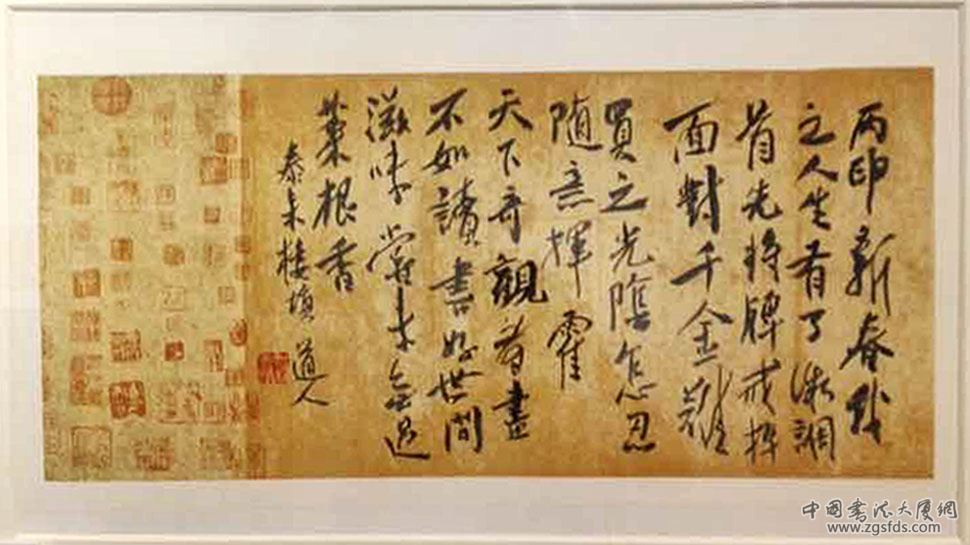 丙申新春我
之人生有了准調
首先將牌戒掉
面對千金難
買之光陰怎忍
隨意揮霍
天下奇觀看盡
不如讀書好世間
滋味嘗來無過
菜根香
泰未樓 道人
中国書法大厦網
www.zgsfds.com